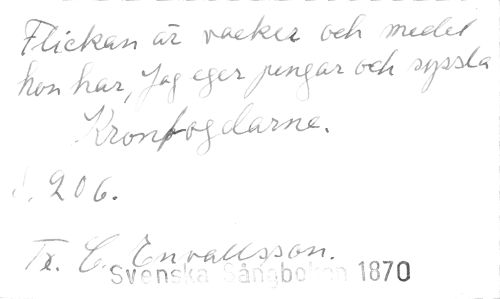 Flickan är vacker och medel
hon har, Jag eger pengar och syssla
Kronfogdarne.
S. 206.
Tx. C. Envallsson.
Svenska Sångboken 1870